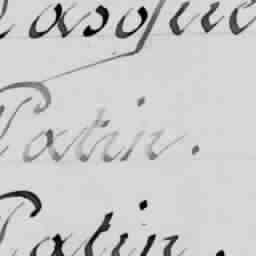 Pasque
Patin.
Patin.